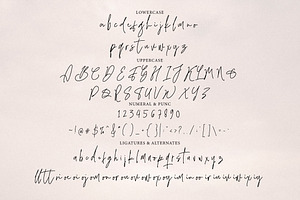 LOWERCASE
abcdefghijklmno
pqrstuvwxyz
UPPERCASE
ABCDEFGHIJKLMNO
PQRSTUVWXYZ
NUMERAL & PUNC
1234567890
LIGATURES & ALTERNATES
abcdefghijklmnopqrstuvwxyz